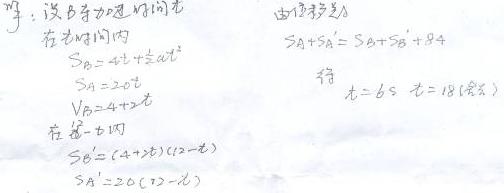 解：设B车加速时间t
在t时间内
S_B=4t+½at²
S_A=20t
V_B=4+2t
在12-t内
S_B'=(4+2t)(12-t)
S_A'=20(12-t)
由位移差
S_A+S_A'=S_B+S_B'+84
得
t=6s t=18(舍去)